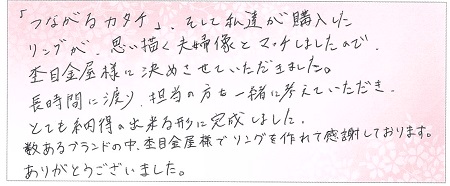 「つながるカタチ」、そして私達が購入した
リングが、思い描く夫婦像とマッチしましたので、
杢目金屋様に決めさせていただきました。
長時間に渡り、担当の方も一緒に考えていただき、
とても納得の出来る形に完成しました。
数あるブランドの中、杢目金屋様でリングを作れて感謝しております。
ありがとうございました。